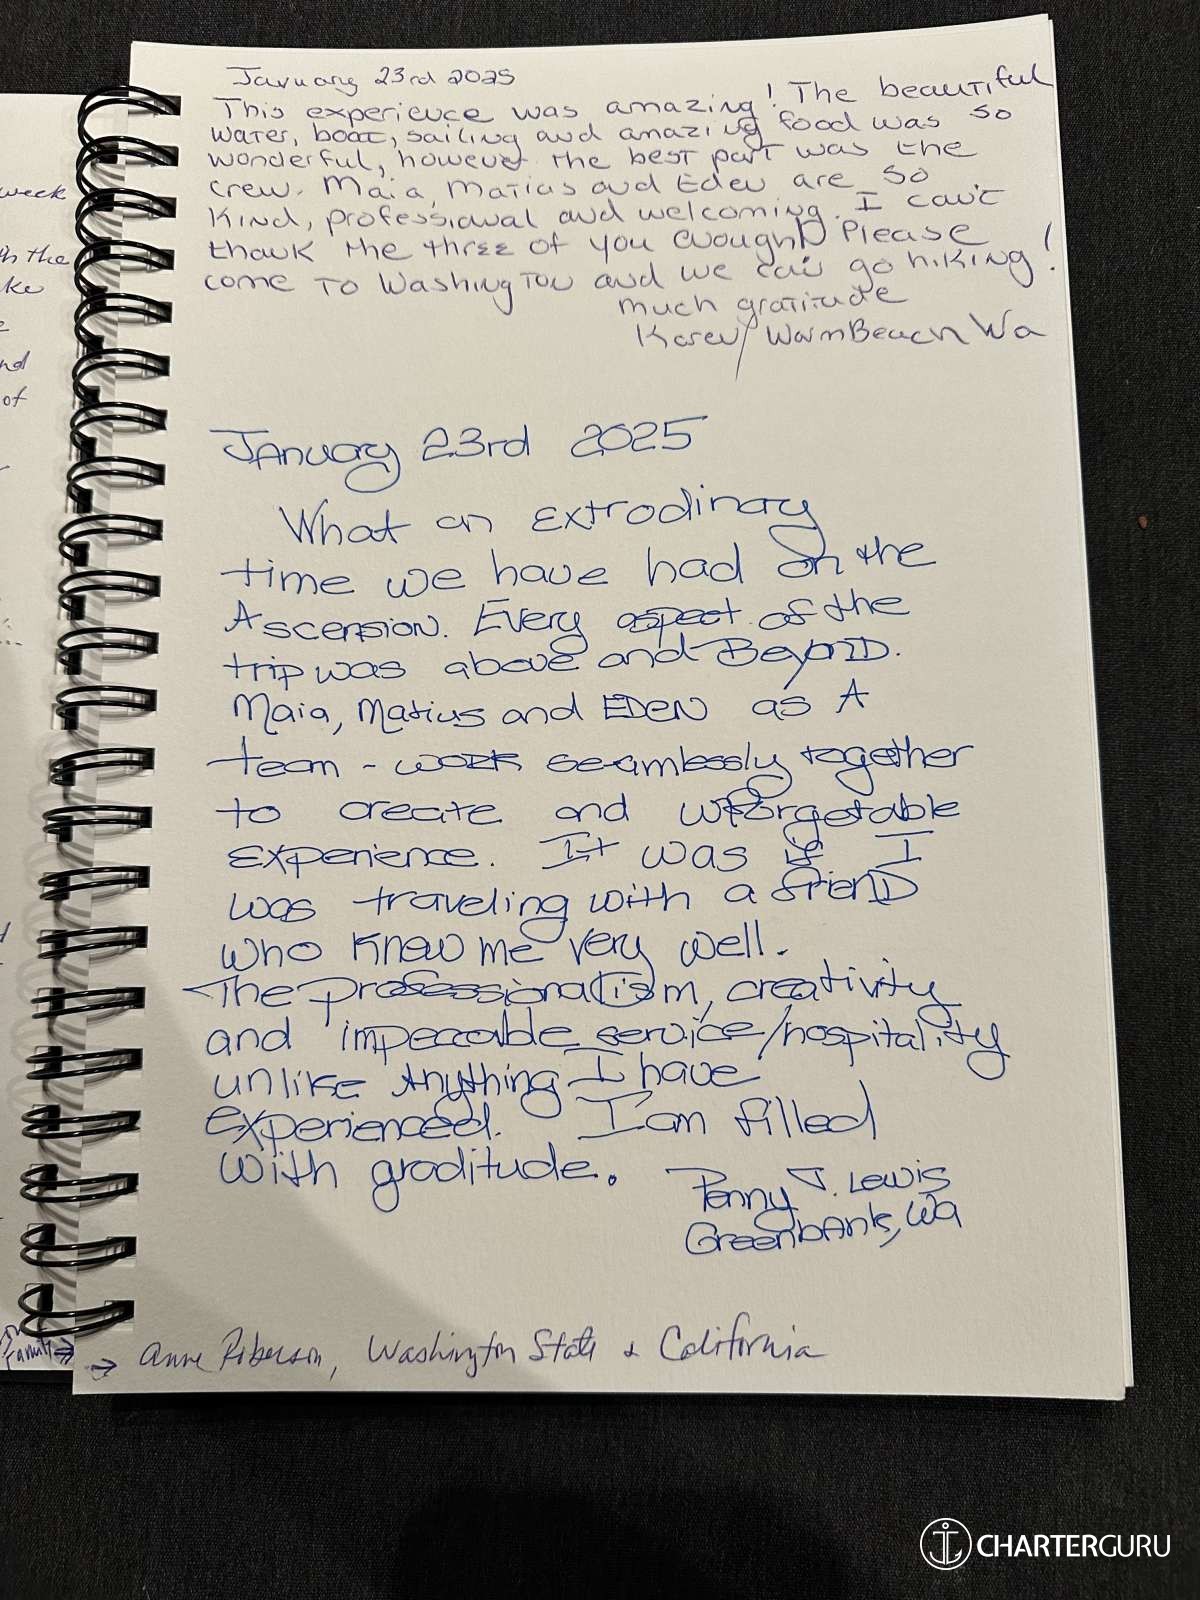 January 23rd 2025
This experience was amazing! The beautiful
water, boat, sailing and amazing food was so
wonderful, however the best part was the
crew. Maia, Matius and Eden are so
kind, professional and welcoming. I can't
thank the three of you enough! Please
come to Washington and we can go hiking!
much gratitude
Karen/ Warm Beach Wa
January 23rd 2025
What an extrodinary
time we have had on the
Ascension. Every aspect of the
trip was above and Beyond.
Maia, Matius and Eden as A
team - work seamlessly together
to create and unforgetable
experience. It was if I
was traveling with a friend
who knew me very well.
The professionalism, creativity
and impeccable service/hospitality
unlike Anything I have
experienced. I am filled
with graditude.
Penny J. Lewis
Greenbank, Wa
→ Anne Roberson, Washington State & California
week
the
ke
nd
of
CHARTERGURU